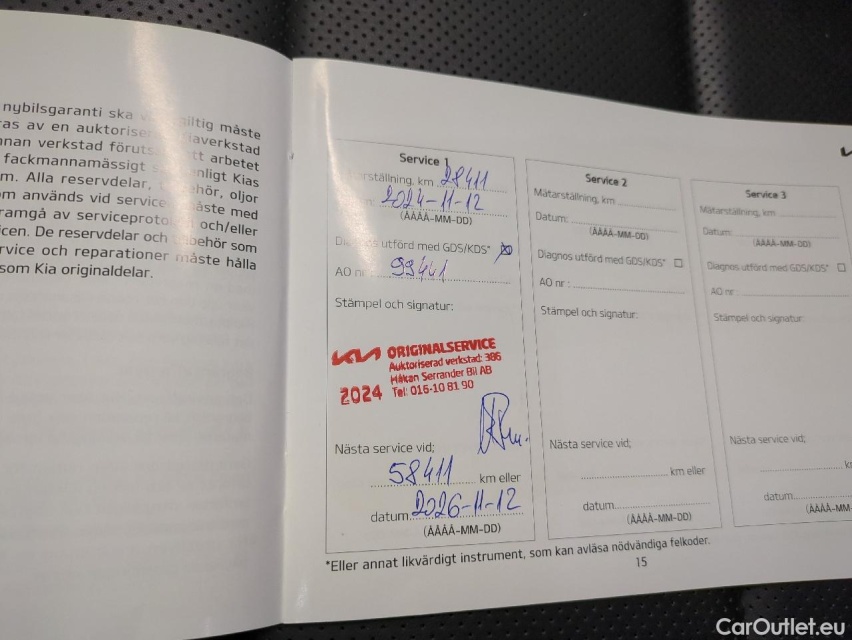 nybilsgaranti ska
giltig måste
av en
verkstad
annan verkstad
att arbetet
fackmannamässigt
enligt Kias
Alla reservdelar,
oljor
som används vid
måste med
framgå av
och/eller
De reservdelar och
som
service och reparationer måste hålla
som Kia originaldelar.
Service 1
Mätarställning, km 28411
2024-11-12
(ÅÅÅÅ-MM-DD)
Diagnos utförd med GDS/KDS*
AO nr 99441
Stämpel och signatur:
KIA ORIGINALSERVICE
Auktoriserad verkstad: 386
Håkan Serrander Bil AB
2024 Tel: 016-10 81 90
Nästa service vid;
58411 km eller
datum 2026-11-12
(ÅÅÅÅ-MM-DD)
Service 2
Mätarställning, km
Datum:
(ÅÅÅÅ-MM-DD)
Diagnos utförd med GDS/KDS*
AO nr :
Stämpel och signatur:
Nästa service vid;
km eller
datum
(ÅÅÅÅ-MM-DD)
Service 3
Mätarställning, km
Datum:
(ÅÅÅÅ-MM-DD)
Diagnos utförd med GDS/KDS*
AO nr :
Stämpel och signatur:
Nästa service vid;
datum
(ÅÅÅÅ-MM-
*Eller annat likvärdigt instrument, som kan avläsa nödvändiga felkoder.
15
CarOutlet.eu